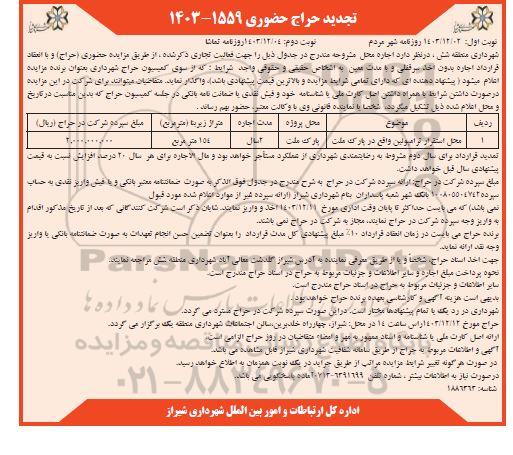 تجدید حراج حضوری ۱۵۵۹-۱۴۰۳
نوبت اول: ۱۴۰۳/۱۲/۰۲ روزنامه شهر مردم نوبت دوم: ۱۴۰۳/۱۲/۰۴ روزنامه تماشا
شهرداری منطقه شش ، درنظر دارد اجاره محل مشروحه مندرج در جدول ذیل را جهت فعالیت تجاری ذکرشده ، از طریق مزایده حضوری (حراج) و با انعقاد
قرارداد اجاره بدون اخذ سرقفلی و با مدت معین به اشخاص حقیقی و حقوقی واجد شرایط : که از سوی کمیسیون حراج شهرداری بعنوان برنده مزایده
اعلام میشود ( پیشنهاد دهنده ای که دارای تمامی شرایط مزایده و بالاترین قیمت پیشنهادی باشد)، واگذار نماید. متقاضیان میتوانند برای شرکت در این مزایده
درصورت داشتن شرایط با همراه داشتن اصل کارت ملی یا شناسنامه خود و فیش نقدی یا ضمانت نامه بانکی در جلسه کمیسیون حراج که بدین مناسبت درتاریخ
و محل اعلام شده ذیل تشکیل میگردد، شخصا یا نماینده قانونی وی با وکالت معتبر، حضور بهم رساند .
ردیف موضوع محل پروژه مدت اجاره متراژ زیربنا (مترمربع) مبلغ سپرده شرکت در حراج (ریال)
۱ محل استقرار ترامپولین واقع در پارک ملت پارک ملت ۲سال ۱۵۴ متر مربع ۲,۰۰۰,۰۰۰,۰۰۰
تمدید قرارداد برای سال دوم مشروط به رضایتمندی شهرداری از عملکرد مستأجر خواهد بود و مال الاجاره برای هر سال ۲۰ درصد افزایش نسبت به قیمت
پیشنهادی سال قبل خواهد داشت.
مبلغ سپرده شرکت در حراج: ارائه سپرده شرکت در حراج به شرح مندرج در جدول فوق الذکر به صورت ضمانتنامه معتبر بانکی و یا فیش واریز نقدی به حساب
سپرده بانک شهر شعبه پاسداران بنام شهرداری شیراز (ارائه سپرده غیر از موارد اعلام شده مورد قبول
نمی باشد) که می بایست حداکثر تا پایان وقت اداری مورخ ۱۴۰۳/۱۲/۱۱ اخذ و واریز نمایند. شایان ذکر است شرکت کنندگانی که بعد از تاریخ مذکور اقدام
به واریز وجه سپرده شرکت در حراج نمایند، مجاز به شرکت در حراج نمی باشند.
برنده حراج می بایست در زمان انعقاد قرارداد ۱۰٪ مبلغ پیشنهادی کل مدت قرارداد را بعنوان تضمین حسن انجام تعهدات به صورت ضمانتنامه بانکی یا واریز
وجه نقد ارائه نماید.
جهت اخذ اسناد حراج، شخصا و یا از طریق معرفی نماینده به آدرس شیراز گلدشت معالی آباد شهرداری منطقه شش مراجعه نمایند.
نحوه پرداخت مبلغ اجاره و سایر اطلاعات و جزئیات مربوط به حراج در اسناد حراج مندرج است.
سایر اطلاعات و جزئیات مربوط به حراج در اسناد حراج مندرج است.
بدیهی است هزینه آگهی و کارشناسی بعهده برنده حراج خواهدبود.
شهرداری در رد یک یا تمام پیشنهادها مختار است. در این صورت سپرده شرکت در حراج مسترد می گردد.
حراج مورخ ۱۴۰۳/۱۲/۱۲ رأس ساعت ۱۴ در محل: شیراز، چهارراه خلدبرین،سالن اجتماعات شهرداری منطقه یک برگزار می گردد.
ارائه اصل کارت ملی یا شناسنامه و اسناد ممهور به مهر و امضاء متقاضیان در روز حراج الزامی است.
آگهی و اطلاعات مربوط به حراج از طریق سامانه شفافیت شهرداری شیراز قابل مشاهده می باشد.
در صورت هرگونه تغییر شرایط مزایده مراتب از طریق جراید در یک نوبت همزمان به اطلاع خواهد رسید.
درصورت نیاز به اطلاعات بیشتر ، شماره تلفن ۰۷۱۳-۶۳۹۱۶۹۹ آماده پاسخگویی می باشد.
شناسه: ۱۸۸۶۳۶۳
اداره کل ارتباطات و امور بین الملل شهرداری شیراز
۰۲۱-۸۸۳۴۹۶۷۰-۵